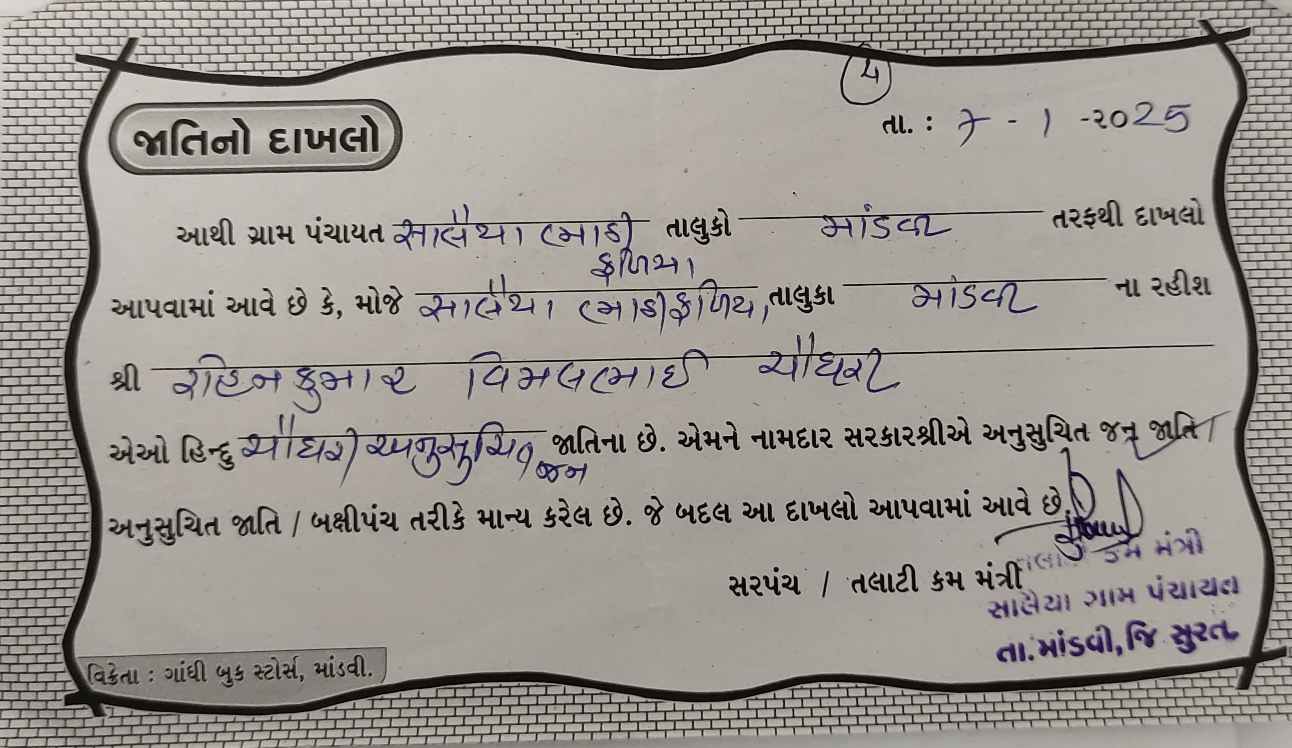 ૫
તા. : ૭ - ૧ -૨૦૨૫
જાતિનો દાખલો
આથી ગ્રામ પંચાયત સાલૈયા (ભાઠી ફળિયા તાલુકો માંડવી તરફથી દાખલો
આપવામાં આવે છે કે, મોજે સાલૈયા (ભાઠી ફળિયા) તાલુકા માંડવી ના રહીશ
શ્રી રોહિનકુમાર વિમલભાઈ ચૌધરી
એઓ હિન્દુ ચૌધરી અનુસુચિત જન જાતિના છે. એમને નામદાર સરકારશ્રીએ અનુસુચિત જન જાતિ /
અનુસુચિત જાતિ / બક્ષીપંચ તરીકે માન્ય કરેલ છે. જે બદલ આ દાખલો આપવામાં આવે છે.
સરપંચ / તલાટી કમ મંત્રી
તલાટી કમ મંત્રી
સાલૈયા ગ્રામ પંચાયત
તા.માંડવી, જિ સુરત
વિક્રેતા : ગાંધી બુક સ્ટોર્સ, માંડવી.